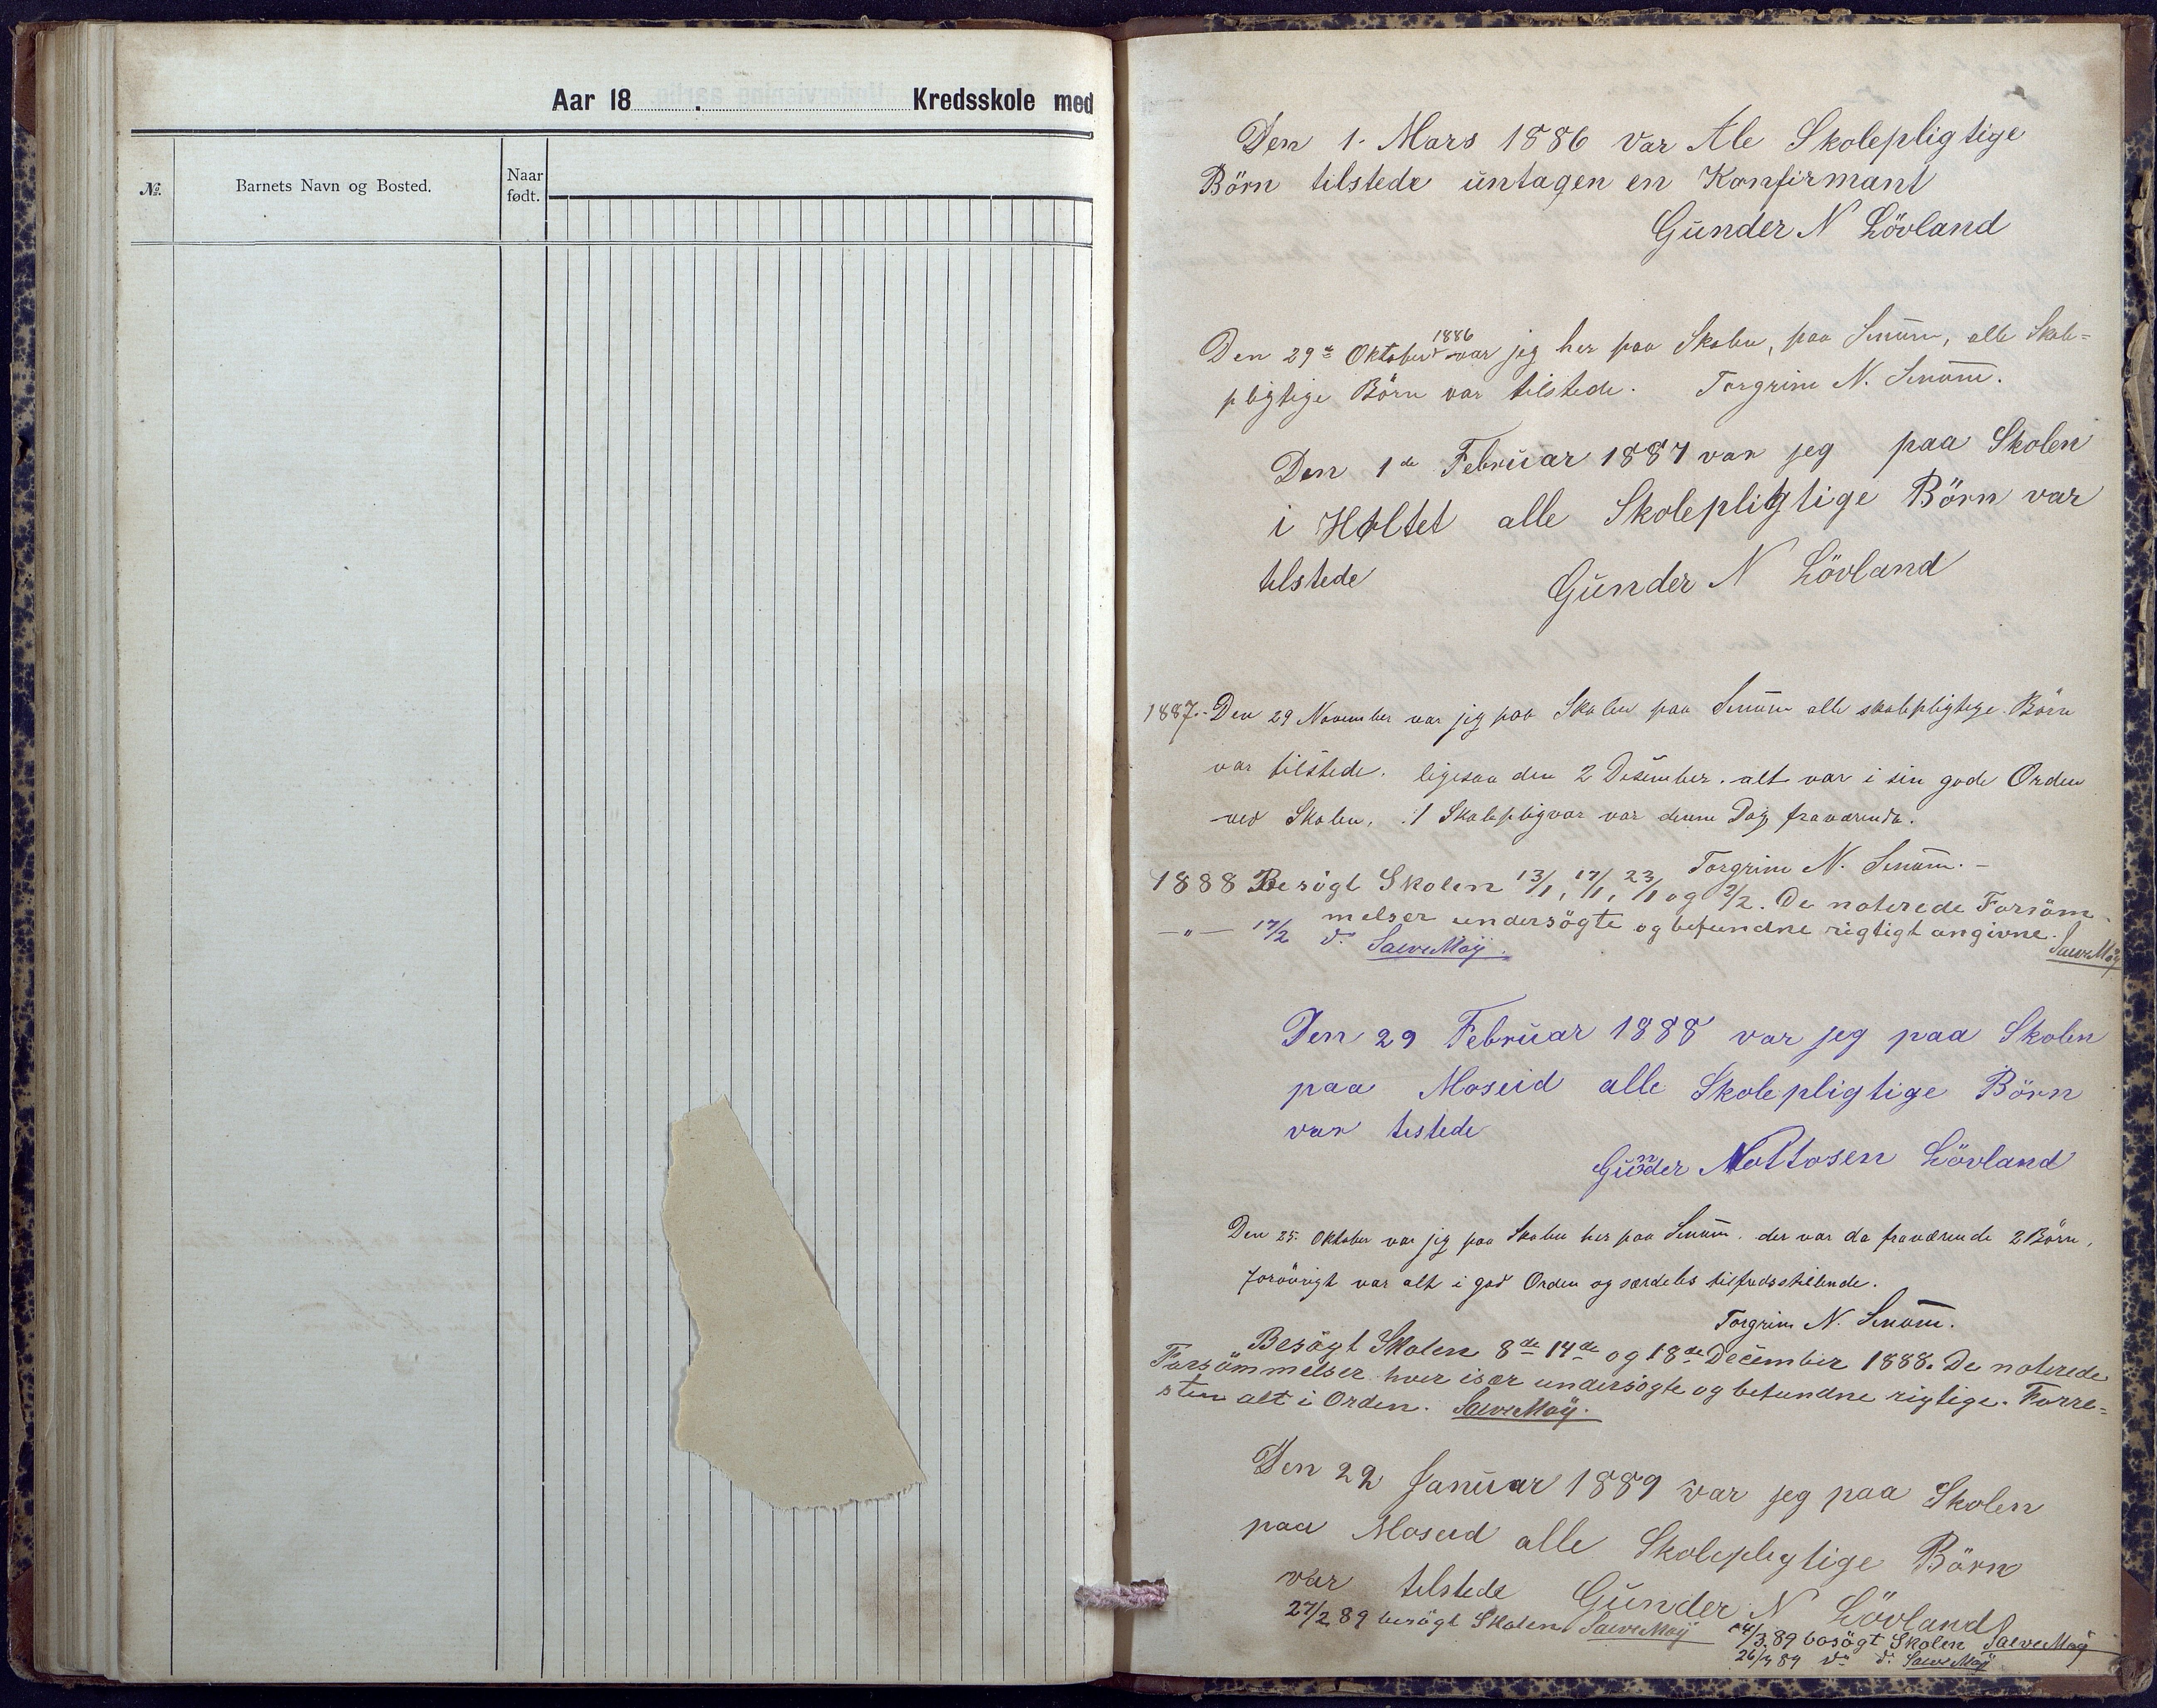 Aar 18 . Kredsskole med
№. Barnets Navn og Bosted. Naar født.
Den 1. Mars 1886 var Ale Skolepligtige
Börn tilstede untagen en Konfirmant
Gunder N Lövland
Den 29de Oktober 1886 var jeg her paa Skolen, paa Senum, alle Skole=
pligtige Börn var tilstede. Torgrim N. Senum.
Den 1de Februar 1887 var jeg paa Skolen
i Holtet alle Skolepligtige Börn var
tilstede Gunder N Lövland
1887.- Den 29 November var jeg paa Skolen paa Senum alle skolepligtige Börn
var tilstede. ligesaa den 2 Desember. alt var i sin gode Orden
ved Skolen. 1 Skolepligvar var denne Dag fraværende.
Torgrim N. Senum. -
1888 Besögt Skolen 13/1, 17/1, 23/1 og 2/2. De noterede Forsöm-
melser undersögte og befundne rigtigt angivne. Salve Moÿ
-"- 17/2 do. Salve Moÿ.
Den 29 Februar 1888 var jeg paa Skolen
paa Moseid alle Skolepligtige Börn
var testede
Gunder Nottosen Lövland
Den 25. Oktober var jeg paa Skolen her paa Senum. der var da fraværende 2 Börn,
forövrigt var alt i god Orden og særdeles tilfredsstillende.
Torgrim N. Senum.
Besögt Skolen 8de 14de og 18de December 1888. De noterede
Forsömmelser hver især undersögte og befundne rigtige. Forre=
sten alt i Orden. Salve Moÿ.
Den 22 Januar 1889 var jeg paa Skolen
paa Moseid alle Skolepligtige Börn
var tilstede Gunder N Lövland
27/2 89 besögt Skolen Salve Moÿ
14/3 89 besögt Skolen Salve Moÿ
26/3 89 do do. Salve Moÿ